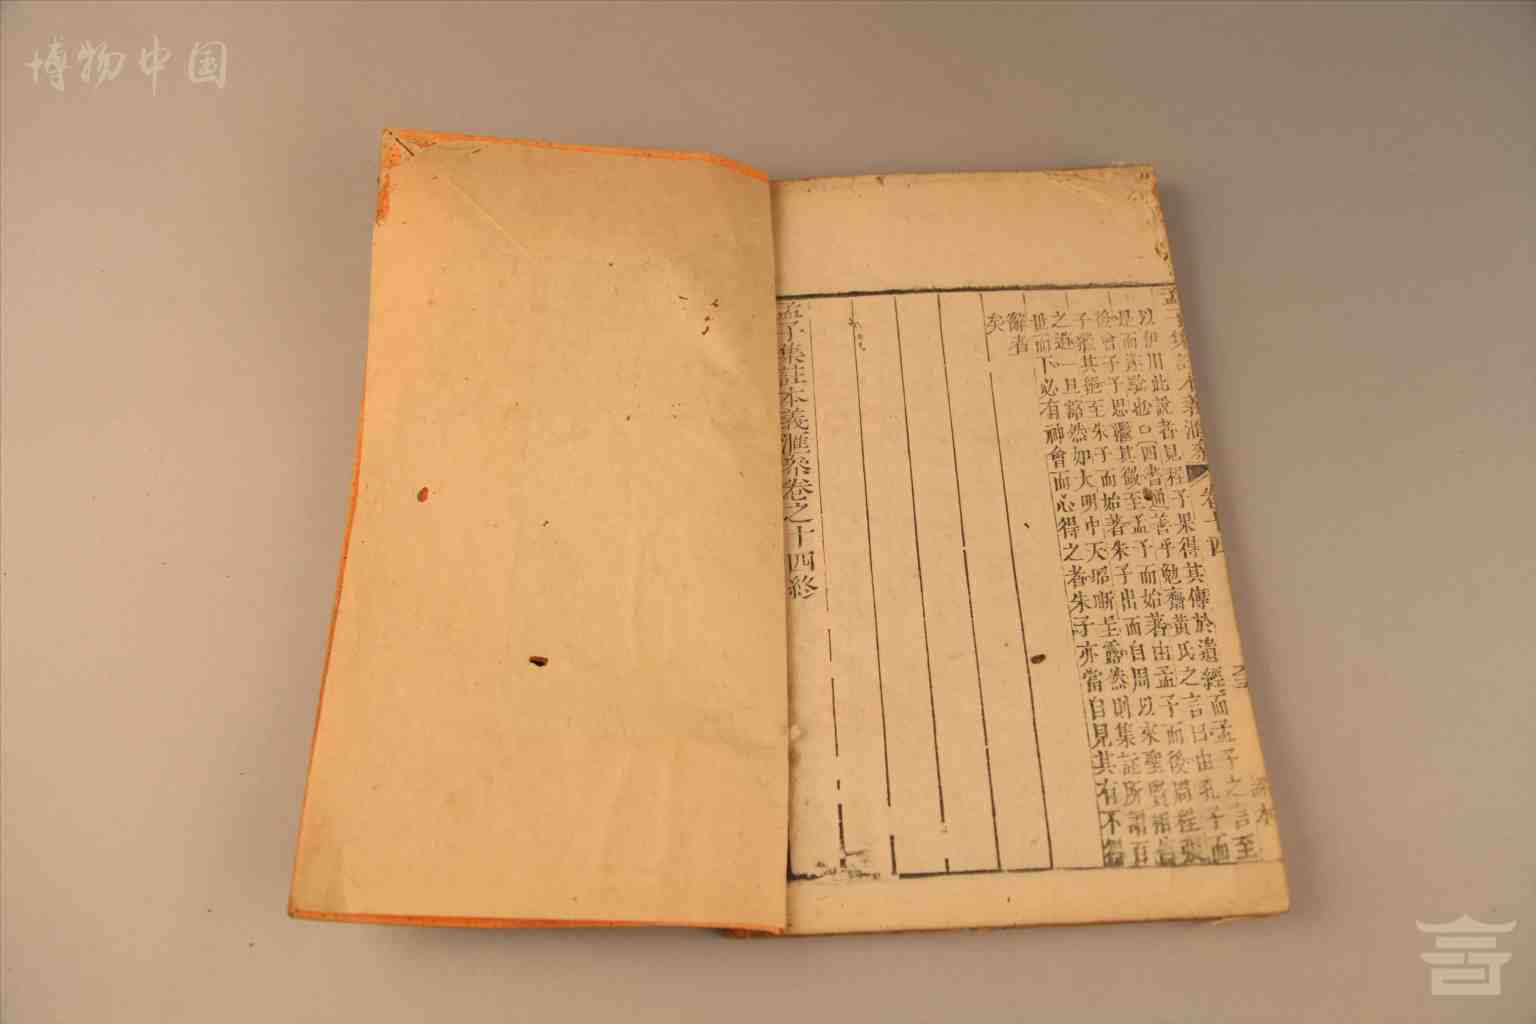 博物中国
孟子集註本義滙參 卷十四
以伊川此說者見程子果得其傳於遺經而孟子之言至
是而益驗也○四書通善乎勉齋黃氏之言曰由孔子而
後曾子子思繼其微至孟子而始著由孟子而後周程張
子繼其絕至朱子而始著朱子出而自周以來聖賢相傳
之道一旦豁然如大明中天昭晰呈露然則集註所謂百
世而下必有神會而心得之者朱子亦當自見其有不得
辭者
矣
孟子集註本義滙參卷之十四終